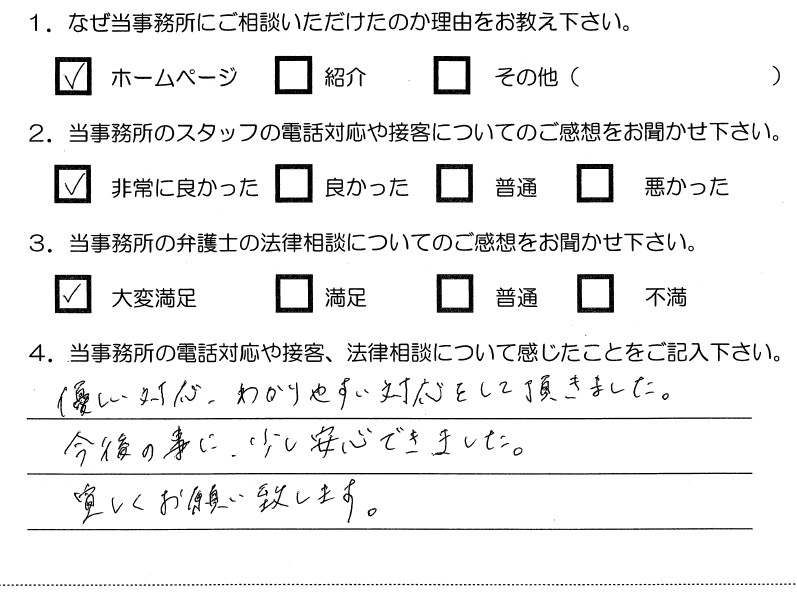 １．なぜ当事務所にご相談いただけたのか理由をお教え下さい。
☑ ホームページ □ 紹介 □ その他（ ）
２．当事務所のスタッフの電話対応や接客についてのご感想をお聞かせ下さい。
☑ 非常に良かった □ 良かった □ 普通 □ 悪かった
３．当事務所の弁護士の法律相談についてのご感想をお聞かせ下さい。
☑ 大変満足 □ 満足 □ 普通 □ 不満
４．当事務所の電話対応や接客、法律相談について感じたことをご記入下さい。
優しい対応、わかりやすい対応をして頂きました。
今後の事に、少し安心できました。
宜しくお願い致します。